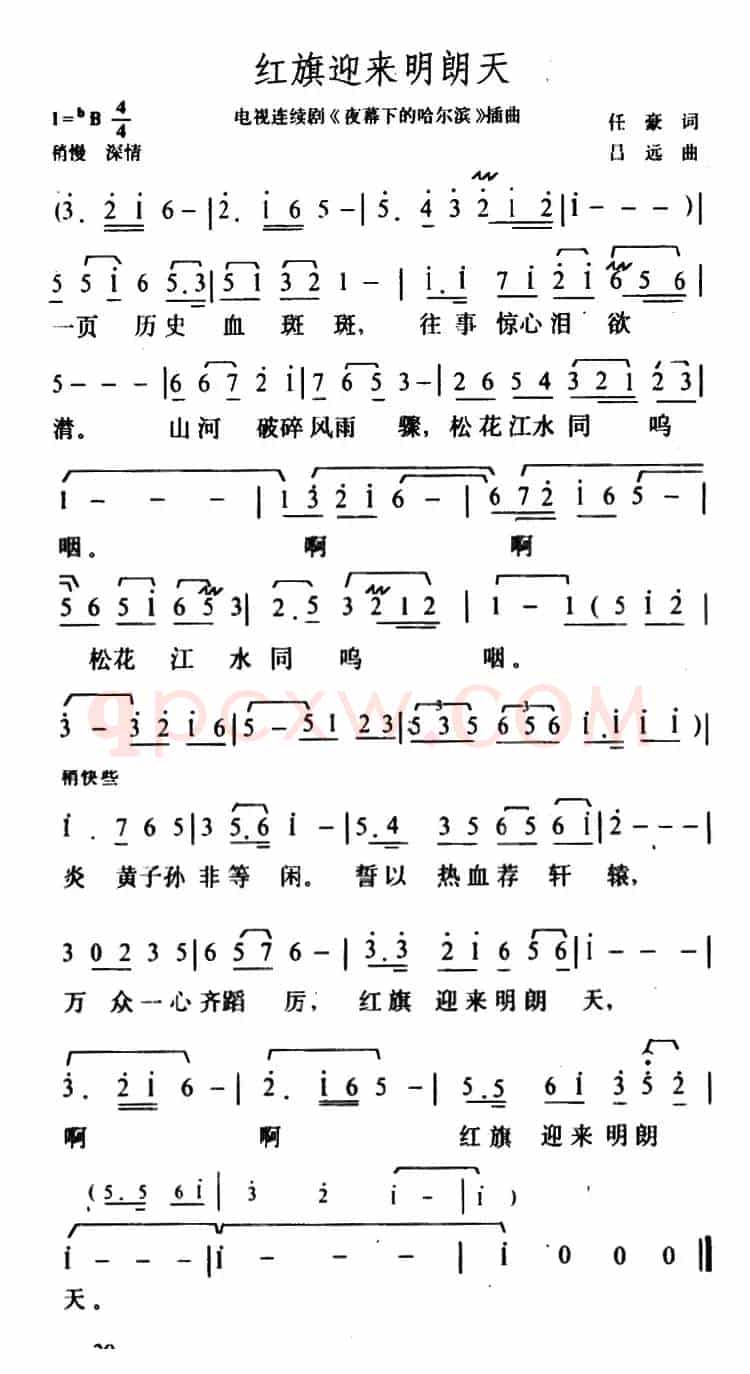 红旗迎来明朗天
1=ᵇB 4/4 电视连续剧《夜幕下的哈尔滨》插曲 任豪词
稍慢 深情 吕远曲
(3̇. 2̇ 1̇ 6 - | 2̇. 1̇ 6 5 - | 5. 4 3 2 1 2 | 1 - - - ) |
5 5 1̇ 6 5.3 | 5 1̇ 3 2 1 - | 1̇.1̇ 7 1̇ 2̇ 1̇ 6 5 6 |
一页 历史 血 斑 斑, 往事惊心泪 欲
5 - - - | 6 6 7 2̇ 1̇ | 7 6 5 3 - | 2 6 5 4 3 2 1 2 3 |
潸。 山河 破碎风雨 骤,松花江水同 呜
1 - - - | 1 3̇ 2̇ 1̇ 6 - | 6 7 2̇ 1̇ 6 5 - |
咽。 啊 啊
5 6 5 1̇ 6 5 3 | 2.5 3 2 1 2 | 1 - 1 ( 5 1̇ 2̇ |
松花 江 水同 呜 咽。
qpcxw.com
3̇ - 3̇ 2̇ 1̇ 6 | 5 - 5 1 2 3 | 5 3 5 6 5 6 1̇.1̇ 1̇ 1̇ ) |
稍快些
1̇ . 7 6 5 | 3 5.6 1̇ - | 5.4 3 5 6 5 6 1̇ | 2̇ - - - |
炎 黄子孙非等 闲。誓以 热血荐 轩 辕,
3 0 2 3 5 | 6 5 7 6 - | 3̇.3̇ 2̇ 1̇ 6 5 5 6 | 1̇ - - - |
万 众一心齐蹈 厉, 红旗 迎来明朗 天,
3̇. 2̇ 1̇ 6 - | 2̇. 1̇ 6 5 - | 5.5 6 1̇ 3̇ 5̇ 2̇ |
啊 啊 红旗 迎来明朗
(5.5 6 1̇ | 3̇ 2̇ 1̇ - | 1̇ )
1̇ - - - | 1̇ - - - | 1̇ 0 0 0 ‖
天。